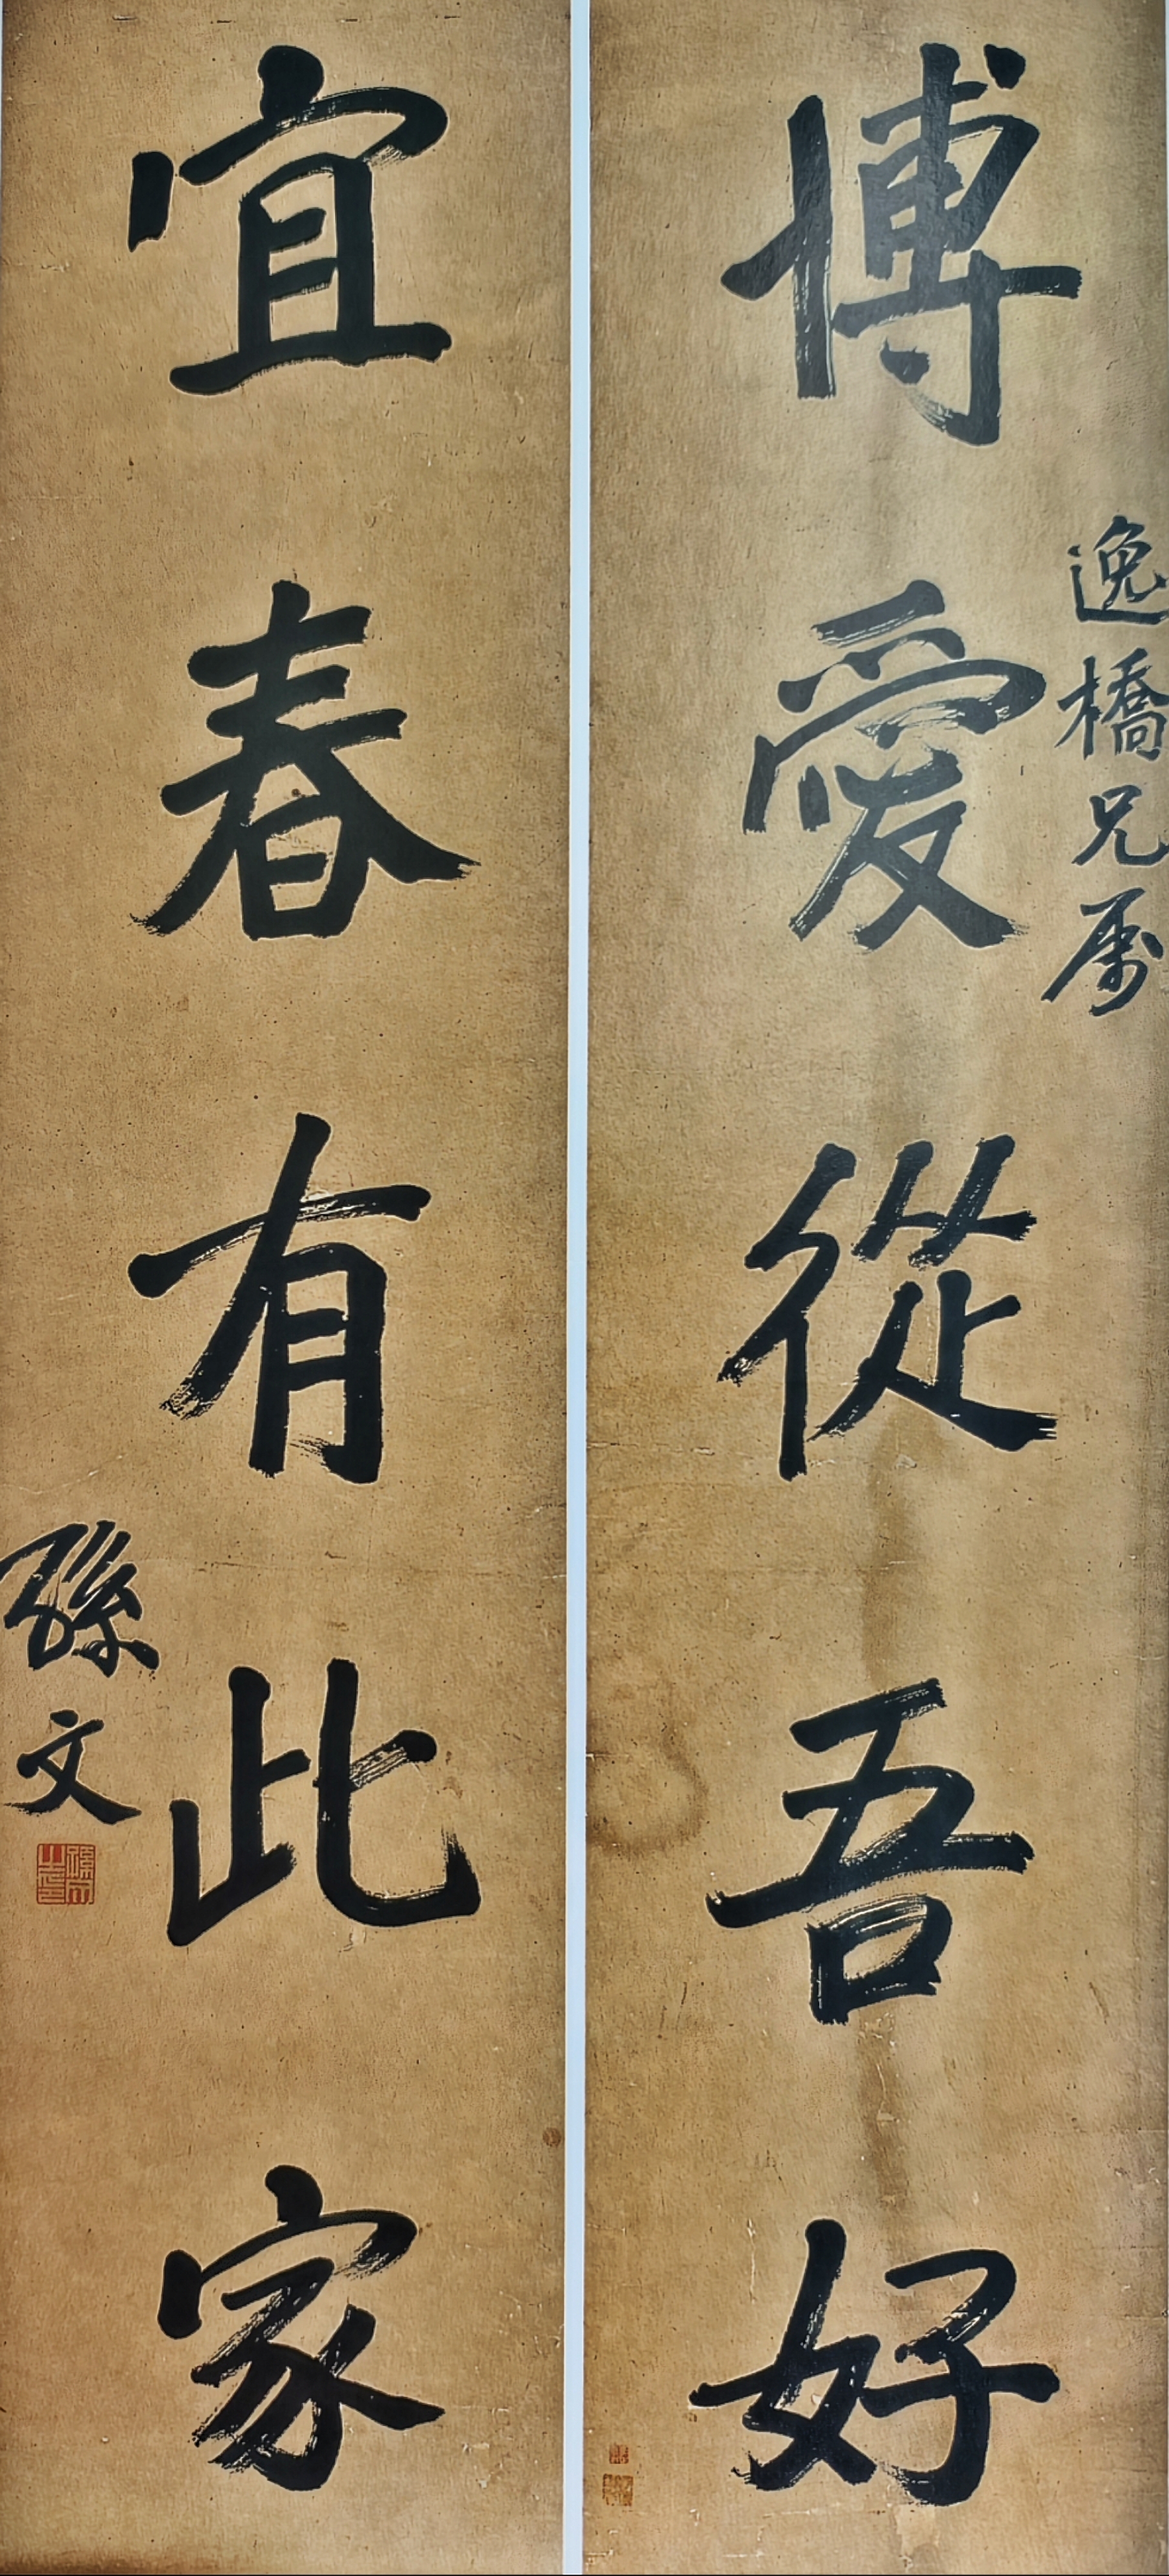 逸橋兄属
博愛從吾好
宜春有此家
孫文